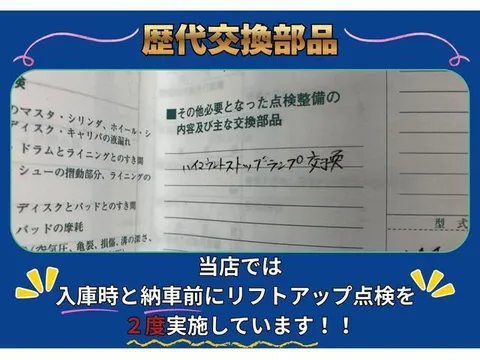 歴代交換部品
検
のマスタ・シリンダ、ホイール・シ
ディスク・キャリパの液漏れ
ドラムとライニングとのすき間
シューの摺動部分、ライニングの
ディスクとパッドとのすき間
パッドの摩耗
(空気圧、亀裂、損傷、溝の深さ、
■その他必要となった点検整備の
内容及び主な交換部品
ハイマウントストップランプ交換
型式
当店では
入庫時と納車前にリフトアップ点検を
２度実施しています！！